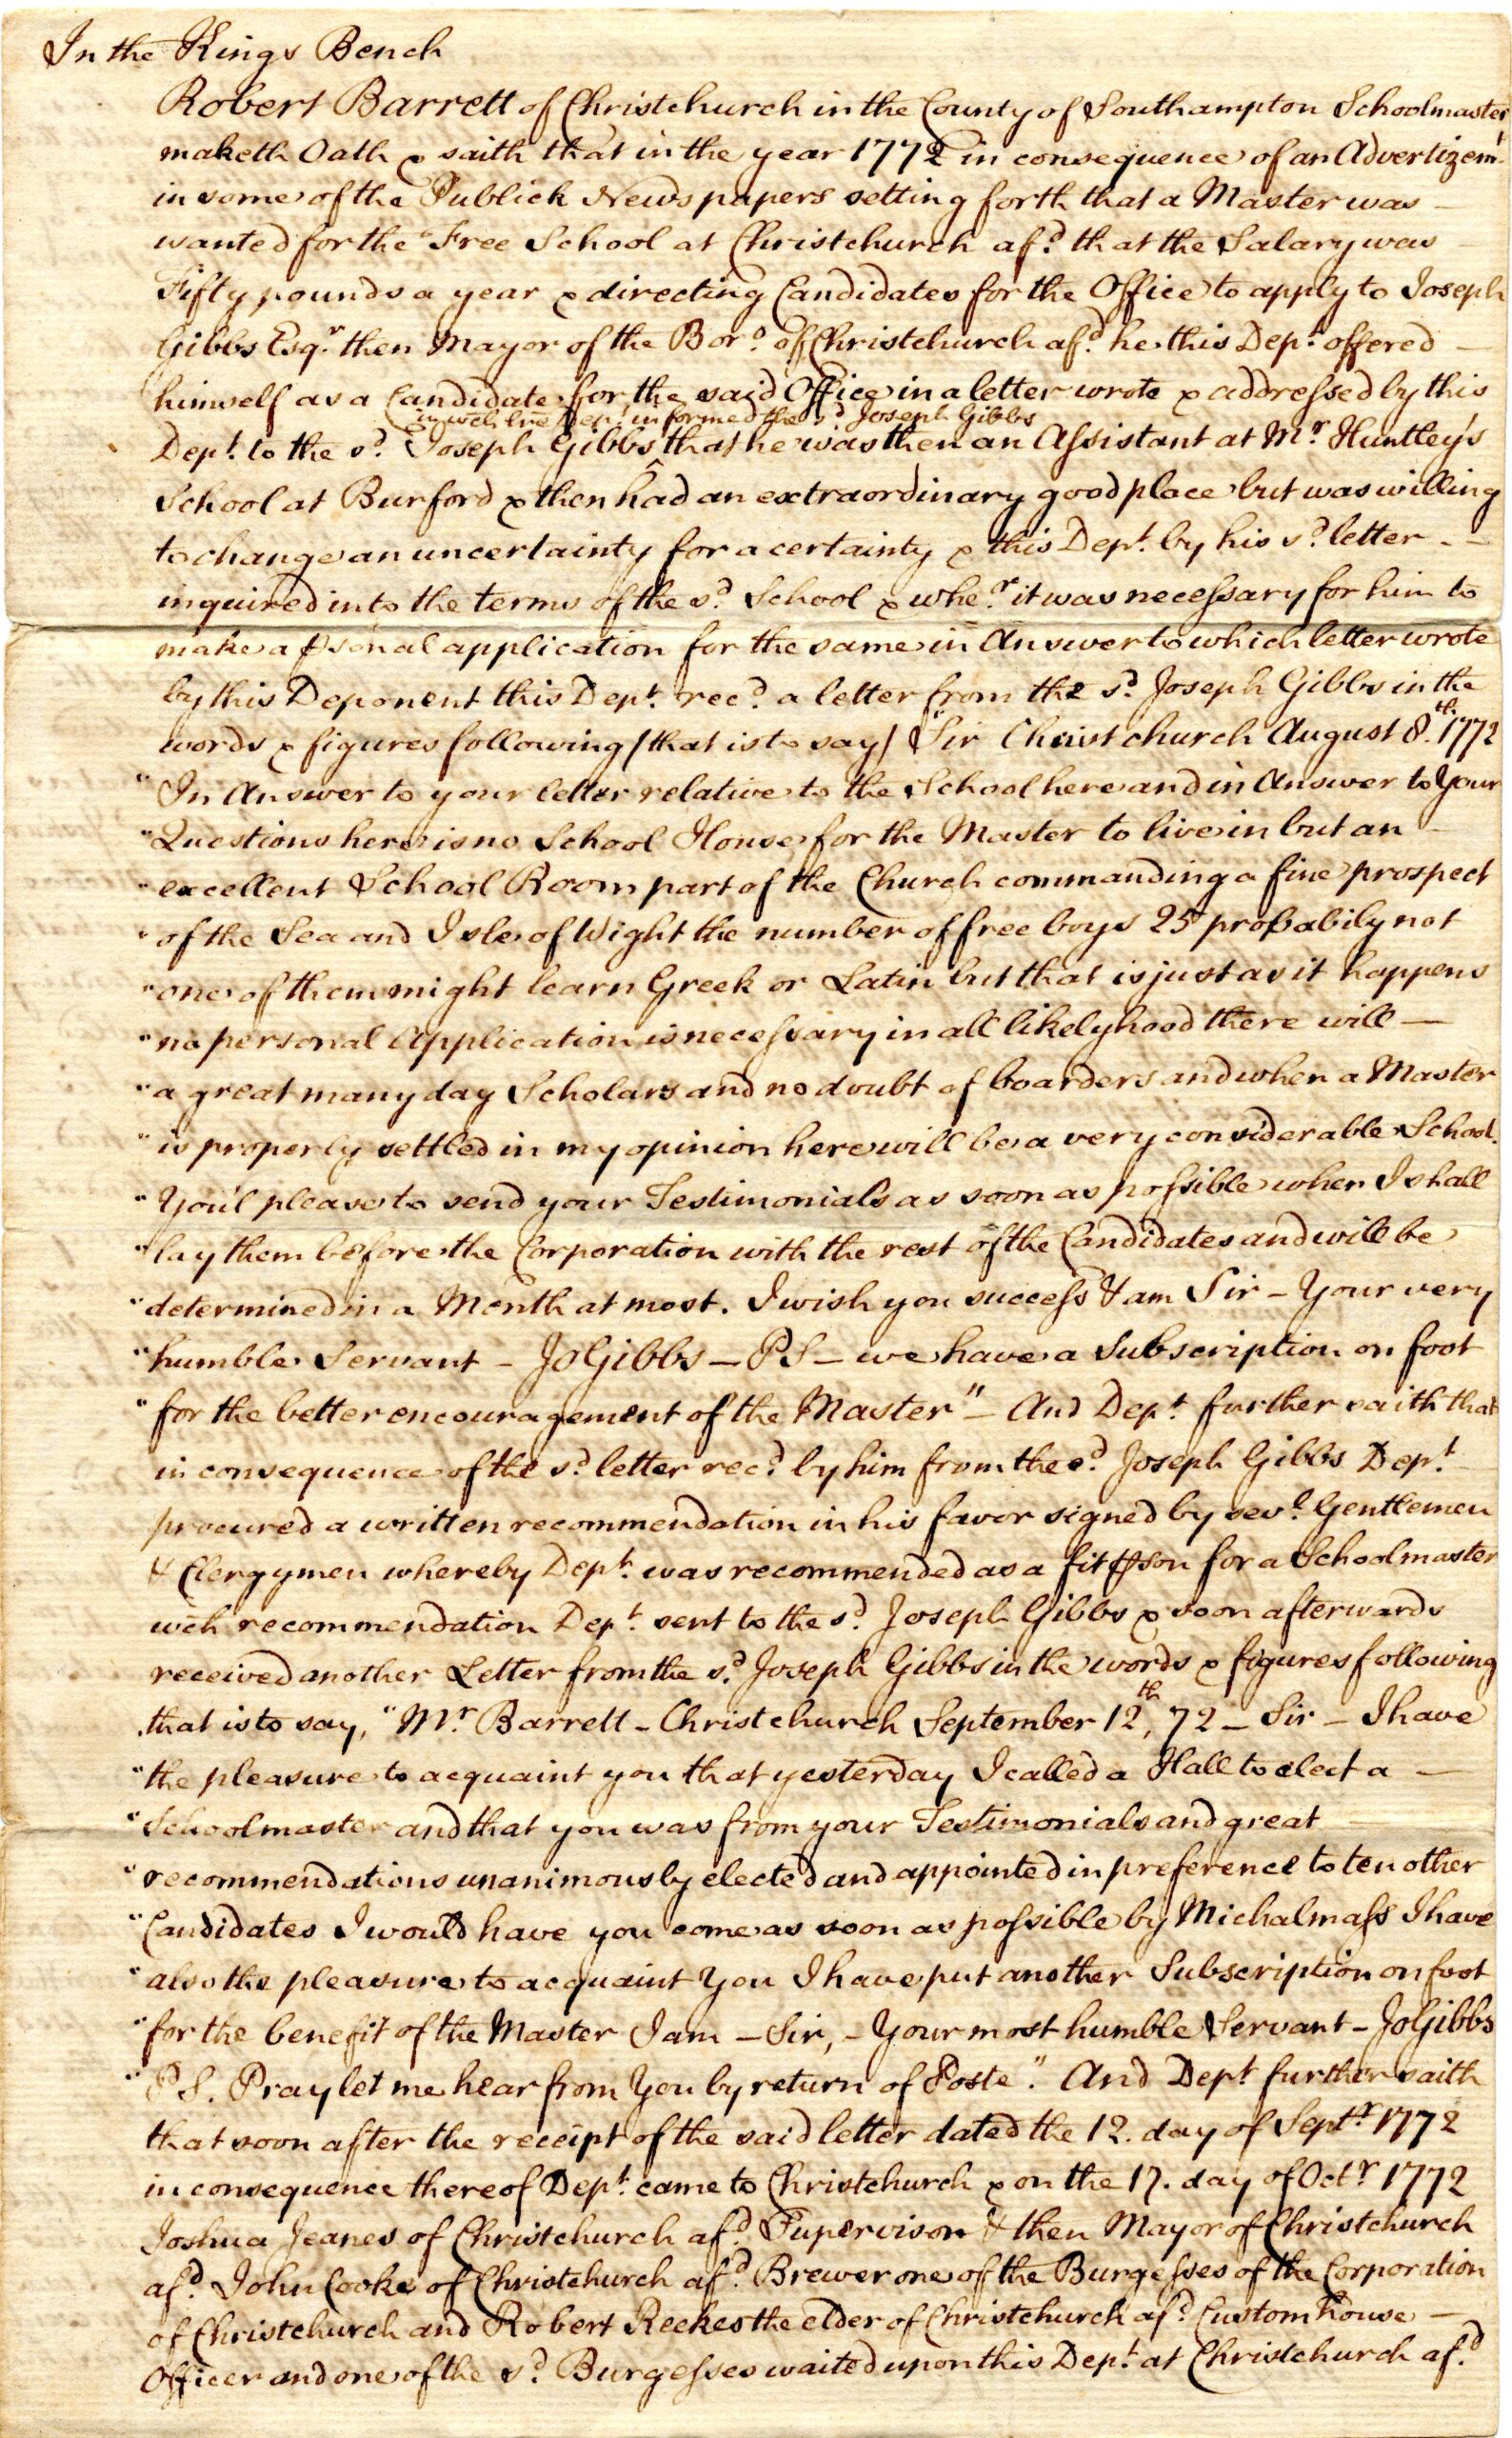 In the Kings Bench
Robert Barrett of Christchurch in the County of Southampton Schoolmaster
maketh Oath & saith that in the year 1772 in consequence of an Advertizem.t
in some of the Publick News papers setting forth that a Master was —
wanted for the Free School at Christchurch af.d that the Salary was —
Fifty pounds a year & directing Candidates for the Office to apply to Joseph
Gibbs Esq.r then Mayor of the Bor.o of Christchurch af.d he this Dep.t offered —
himself as a Candidate for the said Office in a letter wrote & addressed by this
in wch he Dep.t informed the s.d Joseph Gibbs
Dep.t to the s.d Joseph Gibbs ^ that he was then an Assistant at M.r Huntley's
School at Burford & then had an extraordinary good place but was willing
to change an uncertainty for a certainty & this Dep.t by his s.d letter - -
inquired into the terms of the s.d School & whe.r it was necessary for him to
make a psonal application for the same in Answer to which letter wrote
by this Deponent this Dep.t rec.d a letter from the s.d Joseph Gibbs in the
words & figures following /that is to say/ "Sir Christchurch August 8.th 1772
"In Answer to your letter relative to the School here and in Answer to Your
"Questions here is no School House for the Master to live in but an —
"excellent School Room part of the Church commanding a fine prospect
"of the Sea and Isle of Wight the number of free boys 25 probabily not
"one of them might learn Greek or Latin but that is just as it happens
"no personal Application is necessary in all likelyhood there will —
"a great many day Scholars and no doubt of boarders and when a Master
"is properly settled in my opinion here will be a very considerable School.
"You'l please to send your Testimonials as soon as possible when I shall
"lay them before the Corporation with the rest of the Candidates and will be
"determined in a Month at most. I wish you success & am Sir – Your very
"humble Servant – JoGibbs — PS – we have a Subscription on foot
"for the better encouragement of the Master" – And Dep.t further saith that
in consequence of the s.d letter rec.d by him from the s.d Joseph Gibbs Dep.t —
procured a written recommendation in his favor signed by sev.l Gentlemen
& Clergymen whereby Dep.t was recommended as a fit pson for a Schoolmaster
wch recommendation Dep.t sent to the s.d Joseph Gibbs & soon afterwards
received another Letter from the s.d Joseph Gibbs in the words & figures following
that is to say, "M.r Barrett – Christchurch September 12.th, 72 – Sir – I have
"the pleasure to acquaint you that yesterday I called a Hall to elect a —
"Schoolmaster and that you was from your Testimonials and great —
"recommendations unanimously elected and appointed in preference to ten other
"Candidates I would have you come as soon as possible by Michalmass I have
"also the pleasure to acquaint You I have put another Subscription on foot
"for the benefit of the Master I am – Sir, – Your most humble Servant – JoGibbs
"P.S. Pray let me hear from You by return of Poste". And Dep.t further saith
that soon after the receipt of the said letter dated the 12. day of Sept.r 1772
in consequence thereof Dep.t came to Christchurch & on the 17. day of Oct.r 1772
Joshua Jeanes of Christchurch af.d Supervison & then Mayor of Christchurch
af.d John Cooke of Christchurch af.d Brewer one of the Burgesses of the Corporation
of Christchurch and Robert Reekes the elder of Christchurch af.d Custom house —
Officer and one of the s.d Burgesses waited upon this Dep.t at Christchurch af.d